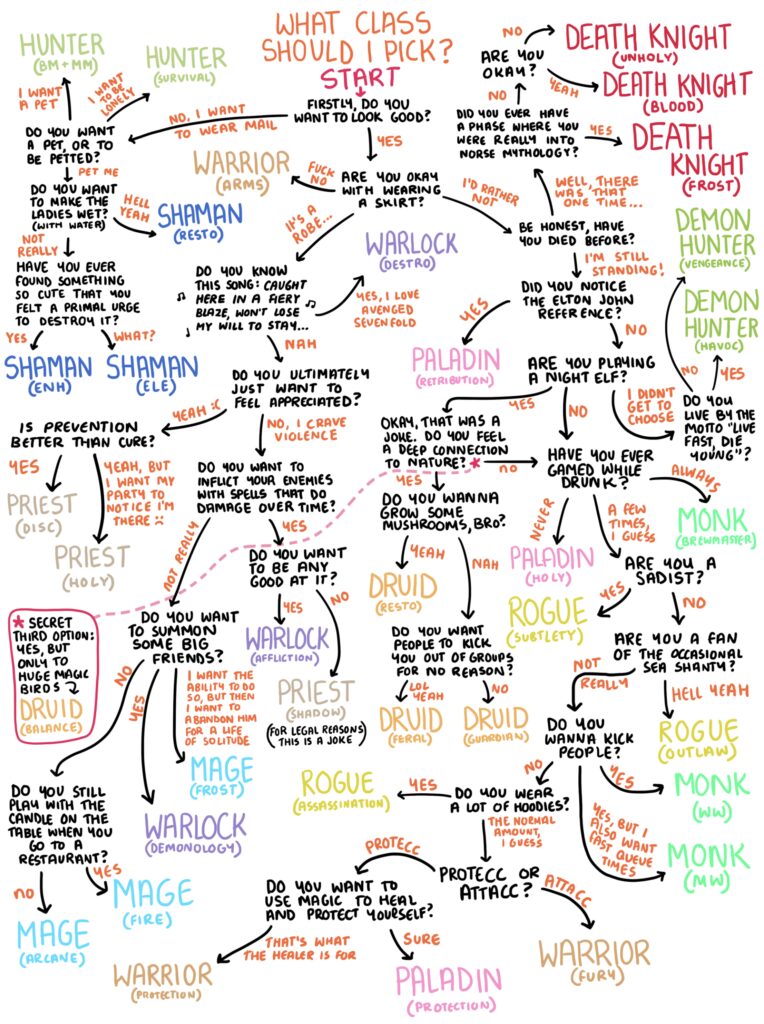 WHAT CLASS
SHOULD I PICK?
START
FIRSTLY, DO YOU
WANT TO LOOK GOOD?
NO, I WANT
TO WEAR MAIL
YES
HUNTER
(BM + MM)
HUNTER
(SURVIVAL)
I WANT
A PET
I WANT
TO BE
LONELY
DO YOU WANT
A PET, OR TO
BE PETTED?
PET ME
DO YOU WANT
TO MAKE THE
LADIES WET?
(WITH WATER)
HELL
YEAH
SHAMAN
(RESTO)
NOT
REALLY
HAVE YOU EVER
FOUND SOMETHING
SO CUTE THAT YOU
FELT A PRIMAL URGE
TO DESTROY IT?
YES
WHAT?
SHAMAN
(ENH)
SHAMAN
(ELE)
WARRIOR
(ARMS)
FUCK
NO
ARE YOU OKAY
WITH WEARING
A SKIRT?
I'D RATHER
NOT
IT'S A
ROBE...
DO YOU KNOW
THIS SONG: CAUGHT
HERE IN A FIERY
BLAZE, WON'T LOSE
MY WILL TO STAY...
WARLOCK
(DESTRO)
YES, I LOVE
AVENGED
SEVENFOLD
NAH
DO YOU ULTIMATELY
JUST WANT TO
FEEL APPRECIATED?
YEAH :(
IS PREVENTION
BETTER THAN CURE?
YES
YEAH, BUT
I WANT MY
PARTY TO
NOTICE I'M
THERE :(
PRIEST
(DISC)
PRIEST
(HOLY)
NO, I CRAVE
VIOLENCE
DO YOU WANT TO
INFLICT YOUR ENEMIES
WITH SPELLS THAT DO
DAMAGE OVER TIME?
NOT REALLY
YES
DO YOU WANT
TO BE ANY
GOOD AT IT?
YES
NO
WARLOCK
(AFFLICTION)
PRIEST
(SHADOW)
(FOR LEGAL REASONS
THIS IS A JOKE)
DO YOU WANT
TO SUMMON
SOME BIG
FRIENDS?
NO
YES
I WANT THE
ABILITY TO DO
SO, BUT THEN
I WANT TO
ABANDON HIM
FOR A LIFE
OF SOLITUDE
MAGE
(FROST)
WARLOCK
(DEMONOLOGY)
DO YOU STILL
PLAY WITH THE
CANDLE ON THE
TABLE WHEN YOU
GO TO A
RESTAURANT?
NO
YES
MAGE
(FIRE)
MAGE
(ARCANE)
* SECRET
THIRD OPTION:
YES, BUT
ONLY TO
HUGE MAGIC
BIRDS
DRUID
(BALANCE)
BE HONEST, HAVE
YOU DIED BEFORE?
WELL, THERE
WAS THAT
ONE TIME...
DID YOU EVER HAVE
A PHASE WHERE YOU
WERE REALLY INTO
NORSE MYTHOLOGY?
YES
DEATH
KNIGHT
(FROST)
NO
ARE YOU
OKAY?
NO
DEATH KNIGHT
(UNHOLY)
YEAH
DEATH KNIGHT
(BLOOD)
I'M STILL
STANDING!
DID YOU NOTICE
THE ELTON JOHN
REFERENCE?
YES
PALADIN
(RETRIBUTION)
NO
ARE YOU PLAYING
A NIGHT ELF?
YES
NO
I DIDN'T
GET TO
CHOOSE
DO YOU
LIVE BY THE
MOTTO "LIVE
FAST, DIE
YOUNG"?
NO
YES
DEMON
HUNTER
(VENGEANCE)
DEMON
HUNTER
(HAVOC)
OKAY, THAT WAS A
JOKE. DO YOU FEEL
A DEEP CONNECTION
TO NATURE? *
NO
YES
DO YOU WANNA
GROW SOME
MUSHROOMS, BRO?
YEAH
NAH
DRUID
(RESTO)
DO YOU WANT
PEOPLE TO KICK
YOU OUT OF GROUPS
FOR NO REASON?
LOL
YEAH
NO
DRUID
(FERAL)
DRUID
(GUARDIAN)
HAVE YOU EVER
GAMED WHILE
DRUNK?
ALWAYS
MONK
(BREWMASTER)
NEVER
PALADIN
(HOLY)
A FEW
TIMES,
I GUESS
ARE YOU A
SADIST?
YES
ROGUE
(SUBTLETY)
NO
ARE YOU A FAN
OF THE OCCASIONAL
SEA SHANTY?
HELL YEAH
ROGUE
(OUTLAW)
NOT
REALLY
DO YOU
WANNA KICK
PEOPLE?
YES
MONK
(WW)
YES, BUT I
ALSO WANT
FAST QUEUE
TIMES
MONK
(MW)
NO
DO YOU WEAR
A LOT OF HOODIES?
YES
ROGUE
(ASSASSINATION)
THE NORMAL
AMOUNT,
I GUESS
PROTECC OR
ATTACC?
PROTECC
ATTACC
WARRIOR
(FURY)
DO YOU WANT TO
USE MAGIC TO HEAL
AND PROTECT YOURSELF?
THAT'S WHAT
THE HEALER IS FOR
SURE
WARRIOR
(PROTECTION)
PALADIN
(PROTECTION)